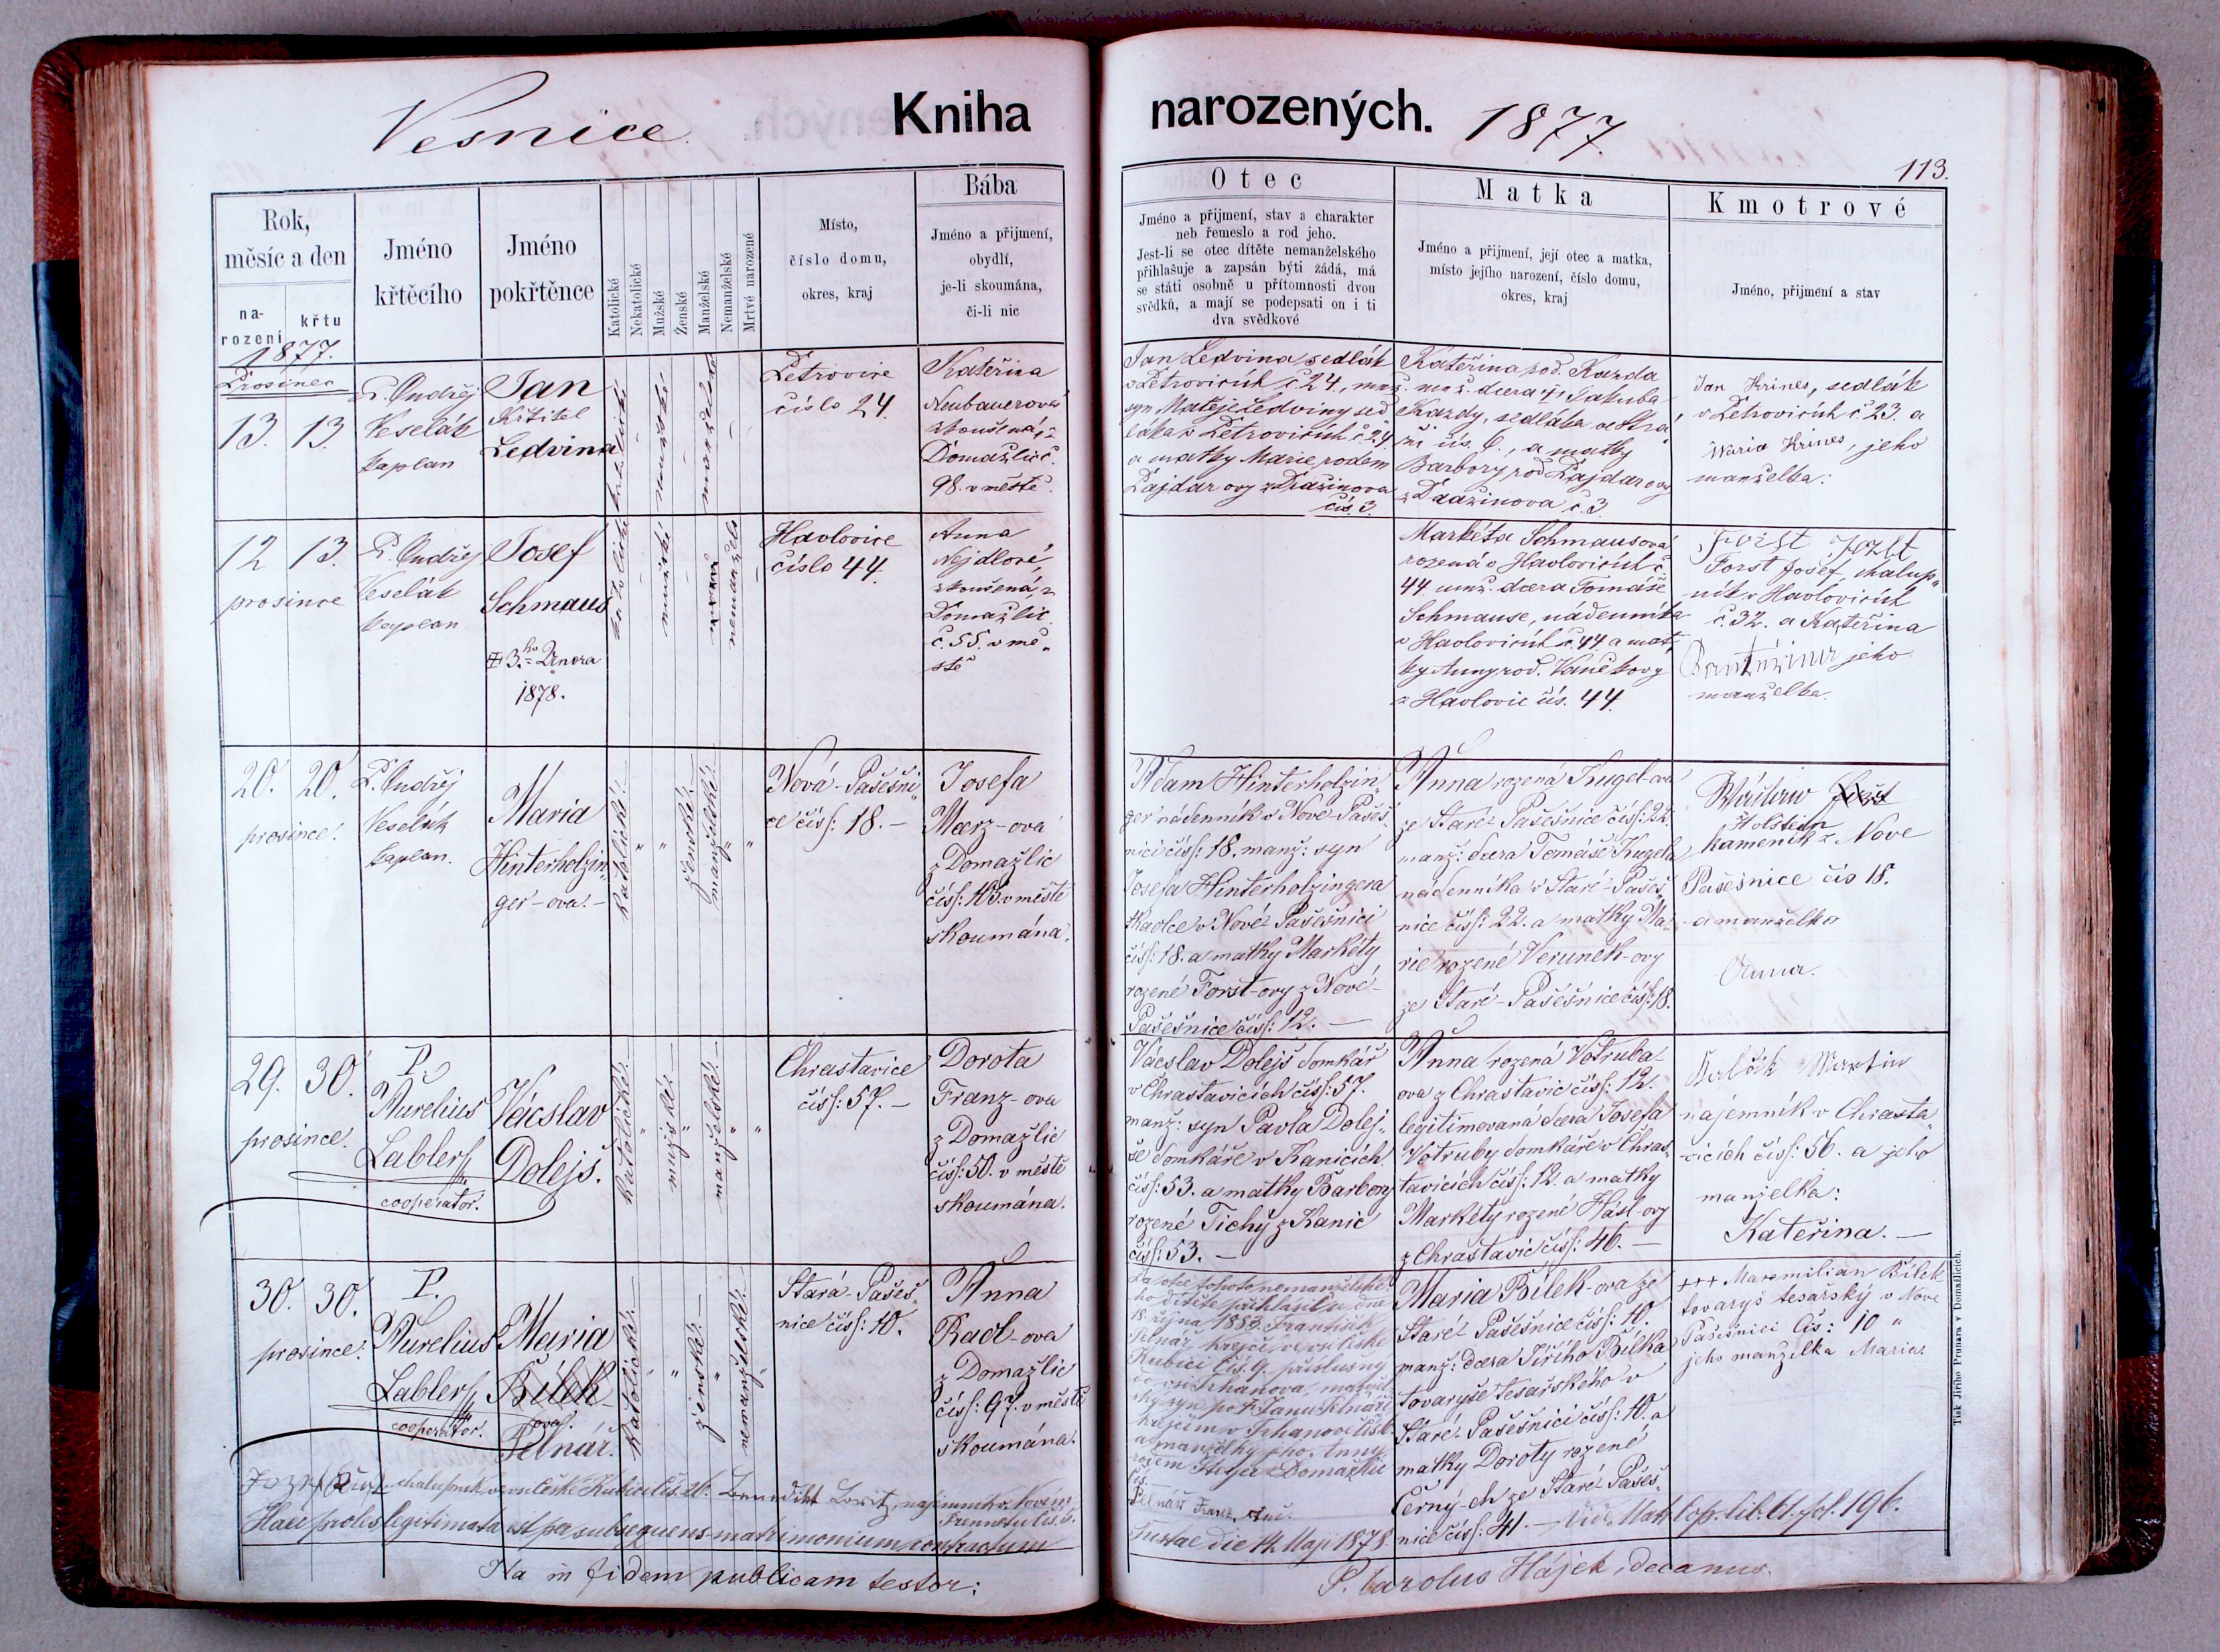 Vesnice.
Kniha
narozených.
1877.
113.
Rok,
měsíc a den
na-
rození
křtu
Jméno
křtěcího
Jméno
pokřtěnce
Katolické
Nekatolické
Mužské
Ženské
Manželské
Nemanželské
Mrtvě narozené
Místo,
číslo domu,
okres, kraj
Bába
Jméno a přijmení,
obydlí,
je-li skoumána,
či-li nic
Otec
Jméno a přijmení, stav a charakter
neb řemeslo a rod jeho.
Jest-li se otec dítěte nemanželského
přihlašuje a zapsán býti žádá, má
se státi osobně u přítomnosti dvou
svědků, a mají se podepsati on i ti
dva svědkové
Matka
Jméno a přijmení, její otec a matka,
místo jejího narození, číslo domu,
okres, kraj
Kmotrové
Jméno, přijmení a stav
1877.
Prosinec
13. 13.
P. Ondřej
Veselák
kaplan
Jan
Křtitel
Ledvina
katolické
mužské
manželské
Petrovice
číslo 24.
Kateřina
Neubauerova
zkoušená, z
Domažlic č.
98. v městě.
Jan Ledvina sedlák
v Petrovicích č 24, manž.
syn Matěje Ledviny sed
láka v Petrovicích č. 24
a matky Marie rodem
Pajdarovy z Dražinova
čís. 3.
Kateřina rod. Kazda
manž. dcera Jakuba
Kazdy, sedláka ve Strá
ži čís. 6., a matky
Barbory rod. Pajdarovy
z Dražinova č. 3.
Jan Krines, sedlák
v Petrovicích č 23. a
Maria Krines, jeho
manželka.
12 13.
prosince
P. Ondřej
Veselák
kaplan
Josef
Schmaus
3.ho Února
1878.
katolické
mužské
nemanžels
Havlovice
číslo 44.
Anna
Nejdlové,
zkoušená, z
Domažlic
č. 55. v mě„
stě
Markéta Schmausová
rozená v Havlovicích č.
44. manž. dcera Tomáše
Schmause, nádenníka
v Havlovicích č. 44. a mat„
ky Anny rod. Vaněkovy
z Havlovic čís. 44.
Forst Jozef
Forst Josef chalup„
ník v Havlovicích
č. 32. a Kateřina
jeho
manželka.
20. 20.
prosince.
P. Ondřej
Veselák
kaplan.
Maria
Hinterholzin„
ger-ova.-
katolické.
ženské.
manželské.
Nová-Pašešni„
ce čís: 18.-
Josefa
Marz-ova
z Domažlic
čís: 103. v městě
skoumána.
Adam Hinterholzin„
ger nádenník v Nové-Pašeš„
nici čís: 18. manž: syn
Josefa Hinterholzingera
tkadlce v Nové Pašešnici
čís: 18. a matky Markéty
rozené Forst-ovy z Nové-
Pašešnice čís: 12.-
Anna rozená Kugel-ova
ze Staré-Pašešnice čís: 22.
manž: dcera Tomáše Kugela
nádenníka v Staré-Pašeš„
nice čís: 22. a matky Ma„
rie rozené Verunek-ovy
ze Staré-Pašešnice čís: 18.
Holstein
kameník z Nove
Pašešnice čis 18.
a manželka
Anna.
29. 30.
prosince.
P.
Aurelius
Labler
cooperator.
Vácslav
Dolejš.
katolické.
mužské.
manželské.
Chrastavice
čís: 57.-
Dorota
Franz-ova
z Domažlic
čís: 50. v městě
skoumána.
Vácslav Dolejš domkář
v Chrastavicích čís: 57.
manž: syn Pavla Dolej„
še domkáře v Kanicích
čís: 53. a matky Barbory
rozené Tichý z Kanic
čís: 53.-
Anna rozená Votruba-
ova z Chrastavic čís: 12.
legitimovaná dcera Josefa
Votruby domkáře v Chras„
tavicích čís: 12. a matky
Markéty rozené Hásl-ovy
z Chrastavic čís: 46.-
Martin
nájemník v Chrasta„
vicích čís: 56. a jeho
manželka:
Kateřina.-
30. 30.
prosince.
P.
Aurelius
Labler
cooperator.
Maria
Bílek-
ova.
Pelnář.
katolické.
ženské.
nemanželské.
Stará-Pašeš„
nice čís: 10.
Anna
Radl-ova
z Domažlic
čís: 97. v městě
skoumána.
Za otce tohoto nemanželské„
ho dítěte přihlásil se dne
18. října 1883. František
Pelnář krejčí ve vsi české
Kubici čís. 9. příslušný
do vsi Trhanova, manžel„
ský syn po † Janu Pelnáři
krejčím v Trhanově čís 6.
a manželky jeho Anny
rodem z Domažlic
čís.
Pelnář Franz, otec.
Maria Bílek-ova ze
Staré Pašešnice čís: 10.
manž: dcera Jiřího Bílka
tovaryše tesařského v
Staré-Pašešnici čís: 10. a
matky Doroty rozené
Černý-ch ze Staré Pašeš„
nice čís: 41.- Vide Matr. Cop. lib. 61. fol. 196.
+++ Maxmilian Bílek
tovaryš tesarský v Nove
Pašešnici čis: 10 "
jeho manželka Maria.
chalupník ve vsi české Kubici čís. 26. Benedikt Lowitz, nájemník v Novém
Haec proles legitimata est per subsequens matrimonium contractum
Tustae die 14. Maji 1878.
Ita in fidem publicam testor:
P. Carolus Hájek, decanus.
Tisk Jiřího Prunara v Domažlicích.